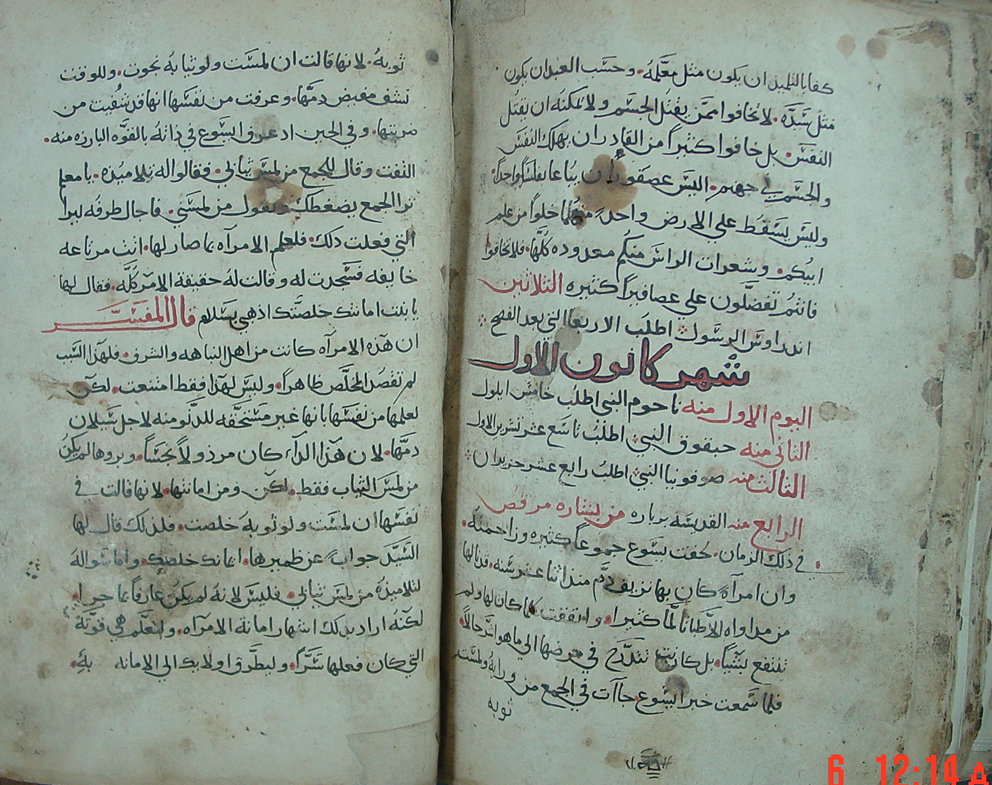 كفايا التلميذ ان يكون مثل معلمه. وحسب العبد ان يكون
مثل سيده. لا تخافوا ممن يقتل الجسم ولا يمكنه ان يقتل
النفس. بل خافوا كثيرا من القادر ان يهلك النفس
والجسم في جهنم. اليس عصفوران يباعا بفلس واحد.
وليس يسقط على الارض واحد منهما خلوا من علم
ابيكم. وشعرات الراس منكم معدوده كلها. فلا تخافوا
فانتم تفضلون على عصافير كثيره الثلاثين
اندراوس الرسول اطلب الاربعا التي بعد الفصح
شهر كانون الاول
اليوم الاول منه ناحوم النبي اطلب خامس ايلول
الثاني منه حبقوق النبي اطلب تاسع عشر تشرين الاول
الثالث منه صوفونيا النبي اطلب رابع عشر حزيران
الرابع منه القديسه برباره من بشاره مرقص
في ذلك الزمان. لحقت يسوع جموعا كثيره وزاحمته.
وان امرآه كان بها نزيف دم منذ اثنا عشر سنه. قد نالها
من مداواه الاطبا الما كثيرا. وانفقت كلما كان لها ولم
تنتفع بشيا. بل كانت تتدرج في مرضها الى ما هو اشر حالا.
فلما سمعت خبر ايسوع جاآت في الجمع من ورايه ولمست
ثوبه
ثوبه. لانها قالت ان لمست ولو ثيابه نجوت. وللوقت
نشف مغيض دمها. وعرفت من نفسها انها قد شفيت من
ضربتها. وفي الحين اذ عرف ايسوع في ذاته بالقوه البارزه منه.
التفت وقال للجمع من لمس ثيابي. فقالوا له تلاميذه. يا معلم
ترا الجمع يضغطك وتقول من لمسني. فاحال طرفه ليرا
التي فعلت ذلك. فلعلم الامرآه بما صار لها. اتت مرتاعه
خايفه فسجدت له وقالت له حقيقة الامر كله. فقال لها
يا بنت امانتك خلصتك اذهبي بسلام قال المفسر
ان هذه الامرآه كانت من اهل النباهه والشرف. فلهذا السبب
لم تقصد المخلص ظاهرا. وليس لهذا فقط امتنعت. لكن
لعلمها من نفسها بانها غير مستحقه للدنو منه لاجل سيلان
دمها. لان هذا الداء كان مرذولا نجسا.
من لمس الثياب فقط. لكن ومن امانتها. لانها قالت في
نفسها ان لمست ولو ثوبه خلصت. فلذلك قال لها
السيد جوابا عن ظميرها. ايمانك خلصك. واما سواله
لتلاميذه من لمس ثيابي. فليس لانه لم يكن عارفا بما جرا.
لكنه اراد بذلك اشهار امانة الامرآه. ولتعلم هي قوته
التي كان فعلها سرا. وليطرق اولايك الى الامانه به.
6 12:14